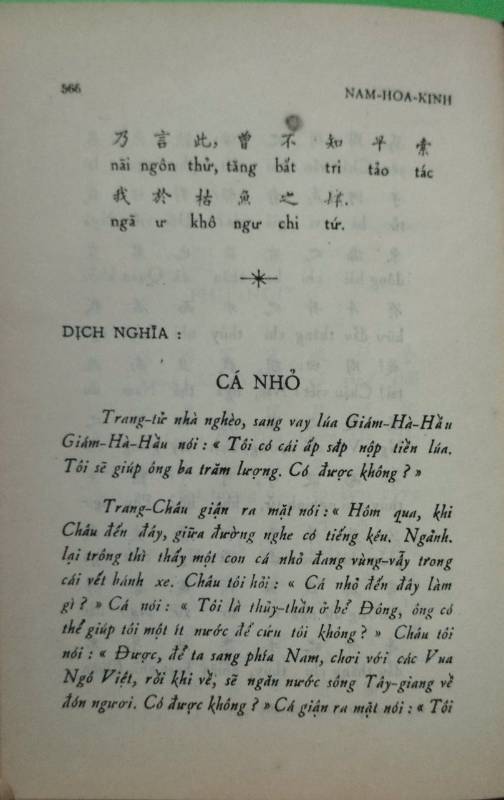 566
NAM-HOA-KINH
乃 言 此, 曾 不 知 早 索
nãi ngôn thử, tăng bất tri tảo tác
我 於 枯 魚 之 肆.
ngã ư khô ngư chi tứ.
DỊCH NGHĨA :
CÁ NHỎ
Trang-tử nhà nghèo, sang vay lúa Giám-Hà-Hầu
Giám-Hà-Hầu nói : « Tôi có cái ấp sắp nộp tiền lúa.
Tôi sẽ giúp ông ba trăm lượng. Có được không ? »
Trang-Châu giận ra mặt nói : « Hôm qua, khi
Châu đến đây, giữa đường nghe có tiếng kêu. Ngảnh.
lại trông thì thấy một con cá nhỏ đang vùng-vẫy trong
cái vết bánh xe. Châu tôi hỏi : « Cá nhỏ đến đây làm
gì ? » Cá nói : « Tôi là thủy-thần ở bể Đông, ông có
thể giúp tôi một ít nước để cứu tôi không ? » Châu tôi
nói : « Được, để ta sang phía Nam, chơi với các Vua
Ngô Việt, rồi khi về, sẽ ngăn nước sông Tây-giang về
đón ngươi. Có được không ? » Cá giận ra mặt nói : « Tôi